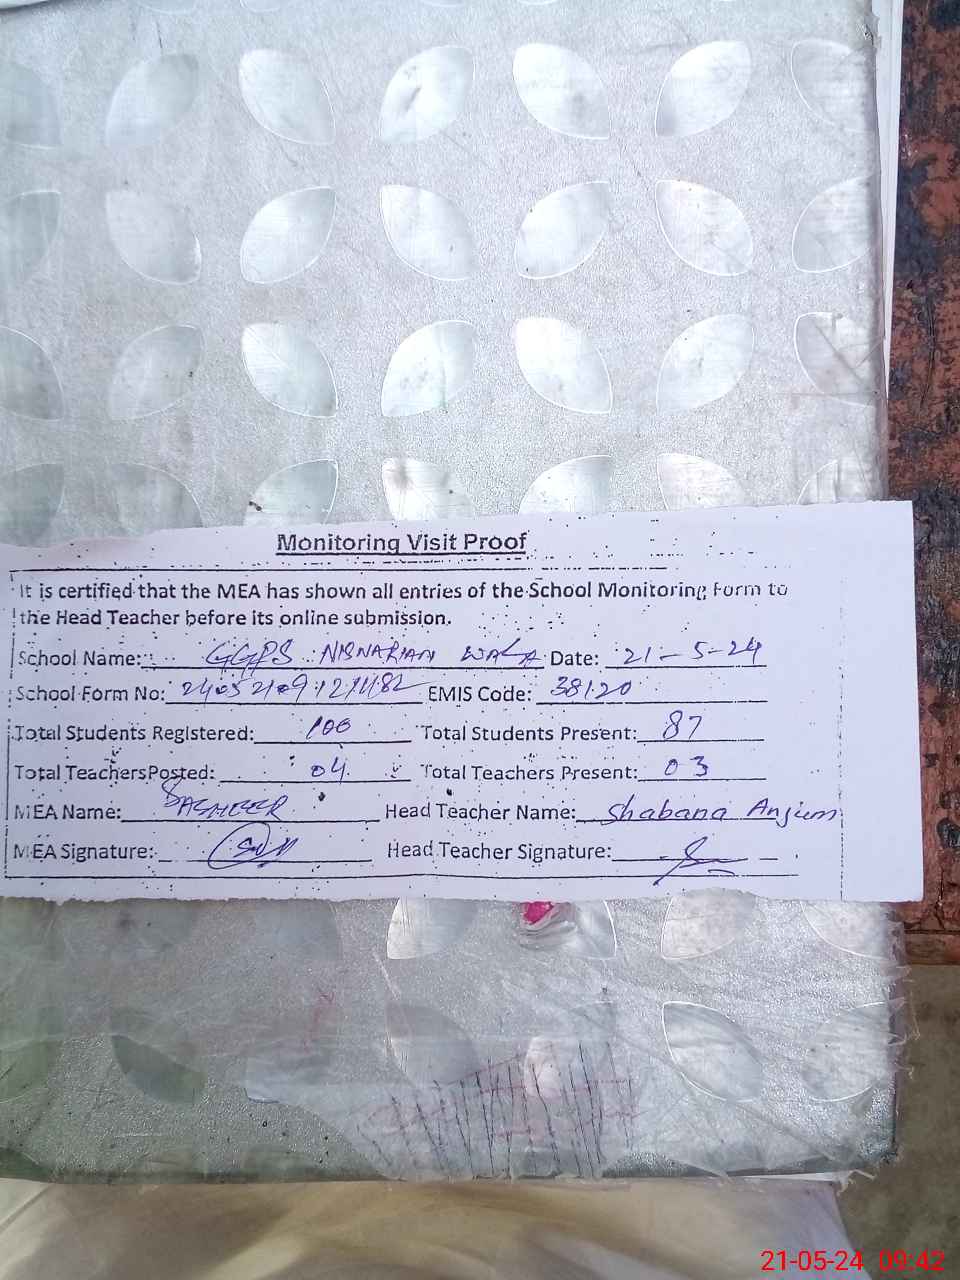 Monitoring Visit Proof
It is certified that the MEA has shown all entries of the School Monitoring Form to
the Head Teacher before its online submission.
School Name: GGPS WALA Date: 21-5-24
School Form No: EMIS Code: 38120
Total Students Registered: 100 Total Students Present: 87
Total Teachers Posted: 04 Total Teachers Present: 03
MEA Name: Head Teacher Name: Shabana Anjum
MEA Signature: Head Teacher Signature:
21-05-24 09:42